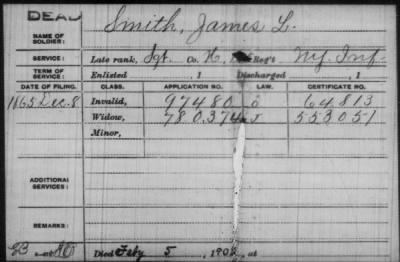 DEAD
NAME OF SOLDIER: Smith, James L.
SERVICE: Late rank, Sgt. Co. H, Reg't Ny. Inf.
TERM OF SERVICE: Enlisted , 1 Discharged , 1
DATE OF FILING. CLASS. APPLICATION NO. LAW. CERTIFICATE NO.
1865 Dec. 8 Invalid, 97480 64813
Widow, 780374 553051
Minor,
ADDITIONAL SERVICES:
REMARKS:
Died Feby 5, 190 , at